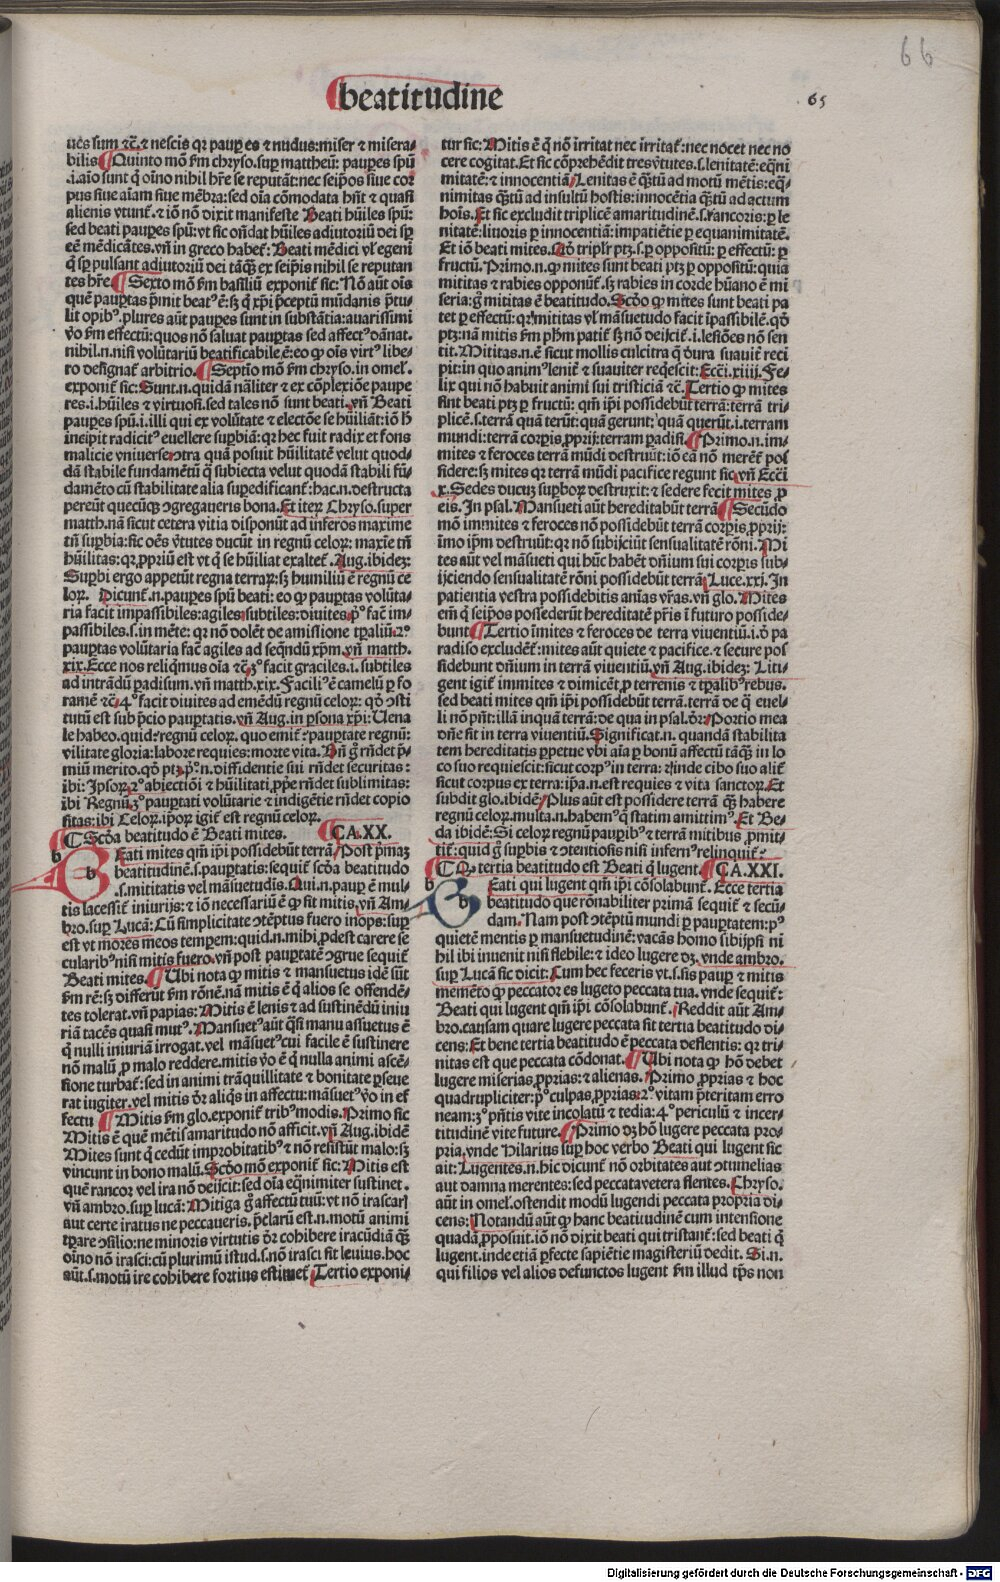 66
beatitudine
65
ues sum ⁊c̄. ⁊ nescis qꝛ paup̱es ⁊ nudus: miser ⁊ misera-
bilis Quinto mō ẜm chryso. sup̱ mattheū: paup̱es sp̄u
.i. aīo sunt q̄ oīno nihil hr̄e se reputāt: nec seip̄os siue coꝛ
pus siue aīam siue mēbra: sed oīa cōmodata hn̄t ⁊ quasi
alienis vtunt᷑. ⁊ iō nō dixit manifeste Beati hūiles sp̄u:
sed beati paup̱es sp̄u: vt sic on̄dat hūiles adiutoriū dei sp̱
eē mēdicātes. vn̄ in greco habet᷑: Beati mēdici vl̓ egeni
q̄ sp̱ pulsant adiutoriū dei tāq̄ ex seip̄is nihil se reputan
tes hr̄e Sexto mō ẜm basiliū exponit᷑ sic: Nō aūt ois
quē paup̱tas p̄mit beatꝰ ē: sꝫ q̄ xp̄i p̄ceptū mūdanis p̄tu-
lit opibꝰ. plures aūt paup̱es sunt in substātia: auarissimi
v̓o ẜm effectū: quos nō saluat paup̱tas sed affectꝰ dānat.
nihil .n. nisi volūtariū beatificabile ē: eo ꝙ oīs virtꝰ libe-
ro designat᷑ arbitrio. Septīo mō ẜm chryso. in omel̓.
exponit᷑ sic: Sunt .n. quidā nāliter ⁊ ex cōplexiōe paupe
res .i. hūiles ⁊ virtuosi. sed tales nō sunt beati. vn̄ Beati
paup̱es sp̄u .i. illi qui ex volūtate ⁊ electōe se hūiliāt: iō h̄
incipit radicitꝰ euellere sup̱biā: qꝛ hec fuit radix et fons
malicie vniuerse: ↄtra quā posuit hūilitatē velut quod-
dā stabile fundamētū q̄ subiecta velut quodā stabili fū-
damēto cū stabilitate alia sup̱edificant᷑: hac .n. destructa
pereūt quecūqꝫ ↄgregaueris bona. Et iteꝝ Chryso. super
matth. nā sicut cetera vitia disponūt ad inferos maxime
tn̄ sup̱bia: sic oēs v̓tutes ducūt in regnū celoꝝ: maxīe tn̄
hūilitas: qꝛ ꝓpriū est vt q̄ se hūiliat exaltet᷑. Aug. ibidez:
Sup̱bi ergo appetūt regna terraꝝ: sꝫ humiliū ē regnū ce
loꝝ. Dicunt᷑ .n. paup̱es sp̄u beati: eo ꝙ paup̱tas volūta-
ria facit impassibiles: agiles: subtiles: diuites, p̓ꝰ fac̄ im-
passibiles .s. in mēte: qꝛ nō dolēt de amissione tp̱aliū. 2ꝰ
paup̱tas volūtaria fac̄ agiles ad seqn̄dū xp̄m. vn̄ matth.
xix. Ecce nos reliqmus oīa ⁊c̄. 3ꝰ facit graciles .i. subtiles
ad intrādū paradisum. vn̄ matth. xix. Faciliꝰ ē camelū p̱ fo
ramē ⁊c̄. 4ꝰ facit diuites ad emēdū regnū celoꝝ: qō ↄsti
tutū est sub p̄cio paup̱tatis. vn̄ Aug. in p̱sona xp̄i: Uena
le habeo. quid? regnū celoꝝ. quo emit᷑? paup̱tate regnū:
vilitate gloria: labore requies: morte vita. Un̄ g̊ rn̄det p̄-
miū merito. qō ptꝫ. p̓ꝰ .n. diffidentie sui rn̄det securitas:
ibi: Ipsoꝝ. 2ꝰ abiectiōi ⁊ hūilitati ꝓp̱e rn̄det sublimitas:
ibi Regnū. 3ꝰ paup̱tati volūtarie ⁊ indigētie rn̄det copio
sitas: ibi Celoꝝ. ip̄oꝝ igit᷑ est regnū celoꝝ.
Scōa beatitudo ē Beati mites. CA. XX.
b Eati mites qm̄ ip̄i possidebūt terrā. Post p̄maꝫ
b beatitudinē .s. paup̱tatis: sequit᷑ scōa beatitudo
.s. mititatis vel māsuetudis. Qui .n. paup̱ ē mul-
tis lacessit᷑ iniurijs: ⁊ iō necessariū ē ꝙ sit mitis. vn̄ Am-
bro. sup̱ Lucā: Cū simplicitate ↄtēptus fuero inops: sup̱
est vt mores meos temperem: quid .n. mihi ꝓdest carere se
cularibꝰ nisi mitis fuero. vn̄ post paup̱tatē ↄgrue sequit᷑
Beati mites. Ubi nota ꝙ mitis ⁊ mansuetus idē sūt
ẜm rē: sꝫ differūt ẜm rōnē. nā mitis ē q̄ alios se offendē-
tes tolerat. vn̄ papias: Mitis ē lenis ⁊ ad sustinēdū iniu
riā tacēs quasi mutꝰ. Mansuetꝰ aūt q̄si manu assuetus ē
q̄ nulli iniuriā irrogat. vel māsuetꝰ cui facile ē sustinere
nō malū ꝓ malo reddere. mitis v̓o ē q̄ nulla animi ascē-
sione turbat᷑: sed in animi trāquillitate ⁊ bonitate p̱seue
rat iugiter. vel mitis dr̄ aliqs in affectu: māsuetꝰ v̓o in ef
fectu Mitis ẜm glo. exponit᷑ tribꝰ modis. Primo sic
Mitis ē quē mētis amaritudo nō afficit. vn̄ Aug. ibidē
Mites sunt q̄ cedūt improbitatibꝰ ⁊ nō resistūt malo: sꝫ
vincunt in bono malū. Scōo mō exponit᷑ sic: Mitis est
quē rancor vel ira nō deijcit: sed oīa eqnimiter sustinet.
vn̄ ambro. sup̱ lucā: Mitiga g̊ affectū tuū: vt nō irascaris
aut certe iratus ne peccaueris. p̄clarū est .n. motū animi
tp̱are ↄsilio: ne minoris virtutis dr̄ cohibere iracūdiā q̄ꝫ
oīno nō irasci: cū plurimū istud .s. nō irasci sit leuius. hoc
aūt .s. motū ire cohibere fortius estimet᷑. Tertio exponi-
tur sic: Mitis ē q̄ nō irritat nec irritat᷑: nec nocet nec no
cere cogitat. Et sic cōprehēdit tres v̓tutes .s. lenitatē: eqni
mitatē: ⁊ innocentiā, Lenitas ē q̄tū ad motū mētis: eq-
nimitas q̄tū ad insultū hostis: innocētia q̄tū ad actum
hoīs. Et sic excludit triplicē amaritudinē .s. rancoris: p̱ le
nitatē: liuoris p̱ innocentiā: impatiētie p̱ equanimitatē.
Et iō beati mites. Qō tripl̓r ptꝫ .s. p̱ oppositū: p̱ effectū: p̱
fructū. Primo .n. ꝙ mites sunt beati ptꝫ p̱ oppositū: quia
mititas ⁊ rabies opponūt᷑. sꝫ rabies in corde hūano ē mi
seria: g̊ mititas ē beatitudo. Scōo ꝙ mites sunt beati pa
tet p̱ effectū: qꝛ mititas vl̓ māsuetudo facit īpassibilē. qō
ptꝫ: nā mitis ẜm ph̄m patit᷑ sꝫ nō deijcit᷑ .i. lesiōes nō sen
tit. Mititas .n. ē sicut mollis culcitra q̄ dura suauit̓ reci
pit: in quo animꝰ lenit᷑ ⁊ suauiter reqescit: Eccī. xiiij. Fe-
lix qui nō habuit animi sui tristiciā ⁊c̄. Tertio ꝙ mites
sint beati ptꝫ p̱ fructū: qm̄ ip̄i possidebūt terrā: terrā tri-
plicē .s. terrā quā terūt: quā gerunt: quā querūt .i. terram
mundi: terrā corp̱is ꝓprij: terram p̱adisi. Primo .n. im-
mites ⁊ feroces terrā mūdi destruūt: iō eā nō meret᷑ pos
sidere: sꝫ mites qꝛ terrā mūdi pacifice regunt sic. vn̄ Eccī
x. Sedes ducuꝫ sup̱boꝝ destruxit: ⁊ sedere fecit mites ꝓ
eis. In psal. Mansueti aūt hereditabūt terrā Secūdo
mō immites ⁊ feroces nō possidebūt terrā corp̱is ꝓprij:
īmo ip̄m destruūt: qꝛ nō subijciūt sensualitatē rōni. Mi
tes aūt vel māsueti qui hūc habēt dn̄ium sui corp̱is sub-
ijciendo sensualitatē rōni possidebūt terrā. Luce. xxj. In
patientia vestra possidebitis aīas vr̄as. vn̄ glo. Mites
em̄ q̄ seipos possederūt hereditatē pr̄is ī futuro posside-
bunt Tertio īmites ⁊ feroces de terra viuentiū .i. d̓ pa
radiso excludēt᷑: mites aūt quiete ⁊ pacifice. ⁊ secure pos
sidebunt dn̄ium in terrā viuentiū. vn̄ Aug. ibidez: Liti-
gent igit᷑ immites ⁊ dimicēt ꝓ terrenis ⁊ tp̱alibꝰ rebus.
sed beati mites qm̄ ip̄i possidebūt terrā. terrā de q̄ euel-
li nō pn̄t: illā inquā terrā: de qua in psal. dr̄: Portio mea
dn̄e sit in terra viuentiū. Significat .n. quandā stabilita
tem hereditatis p̱petue vbi aīa p̱ bonū affectū tāq̄ꝫ in lo
co suo requiescit: sicut corpꝰ in terra: ⁊ inde cibo suo alit᷑
sicut corpus ex terra: ip̄a .n. est requies ⁊ vita sanctoꝝ. Et
subdit glo. ibidē. Plus aūt est possidere terrā q̄ꝫ habere
regnū celoꝝ. multa .n. habemꝰ q̄ statim amittimꝰ. Et Be-
da ibidē: Si celoꝝ regnū paup̱ibꝰ ⁊ terrā mitibus ꝓmit-
tit᷑: quid g̊ sup̱bis ⁊ ↄtentiosis nisi infernꝰ relinquit᷑?
Qō tertia beatitudo est Beati q̄ lugent CA. XXI.
b Eati qui lugent qm̄ ip̄i cōsolabunt᷑. Ecce tertia
b beatitudo que rōnabiliter primā sequit᷑ ⁊ secū-
dam. Nam post ↄtēptū mundi p̱ paup̱tatem: p̓ꝰ
quietē mentis p̱ mansuetudinē: vacās homo sibijpsi ni
hil ibi inuenit nisi flebile: ⁊ ideo lugere dꝫ. vnde ambro.
sup̱ Lucā sic dicit: Cum hec feceris vt .s. sis paup̱ ⁊ mitis
memēto ꝙ peccator es lugeto peccata tua. vnde sequit᷑:
Beati qui lugent qm̄ ip̄i cōsolabunt᷑. Reddit aūt Am-
bro. causam quare lugere peccata sit tertia beatitudo di-
cens: Et bene tertia beatitudo ē peccata deflentis: qꝛ tri-
nitas est que peccata cōdonat. Ubi nota ꝙ hō debet
lugere miserias ꝓprias: ⁊ alienas. Primo ꝓprias ⁊ hoc
quadrupliciter: p̓ꝰ culpas ꝓprias: 2ꝰ vitam p̄teritam erro
neam: 3ꝰ pn̄tis vite incolatū ⁊ tedia: 4ꝰ periculū ⁊ incer-
titudinē vite future. Primo dꝫ hō lugere peccata pro-
pria. vnde Hilarius sup̱ hoc verbo Beati qui lugent sic
ait: Lugentes .n. hic dicunt᷑ nō orbitates aut ↄtumelias
aut damna merentes: sed peccata vetera flentes. Chryso.
aūt in omel̓. ostendit modū lugendi peccata propria di-
cens: Notandū aūt ꝙ hanc beatitudinē cum intensione
quadā ꝓposuit. iō nō dixit beati qui tristant᷑: sed beati q̄
lugent. inde etiā p̱fecte sapiētie magisteriū dedit. Si .n.
qui filios vel alios defunctos lugent ẜm illud tp̄s non
Digitalisierung gefördert durch die Deutsche Forschungsgemeinschaft - DFG